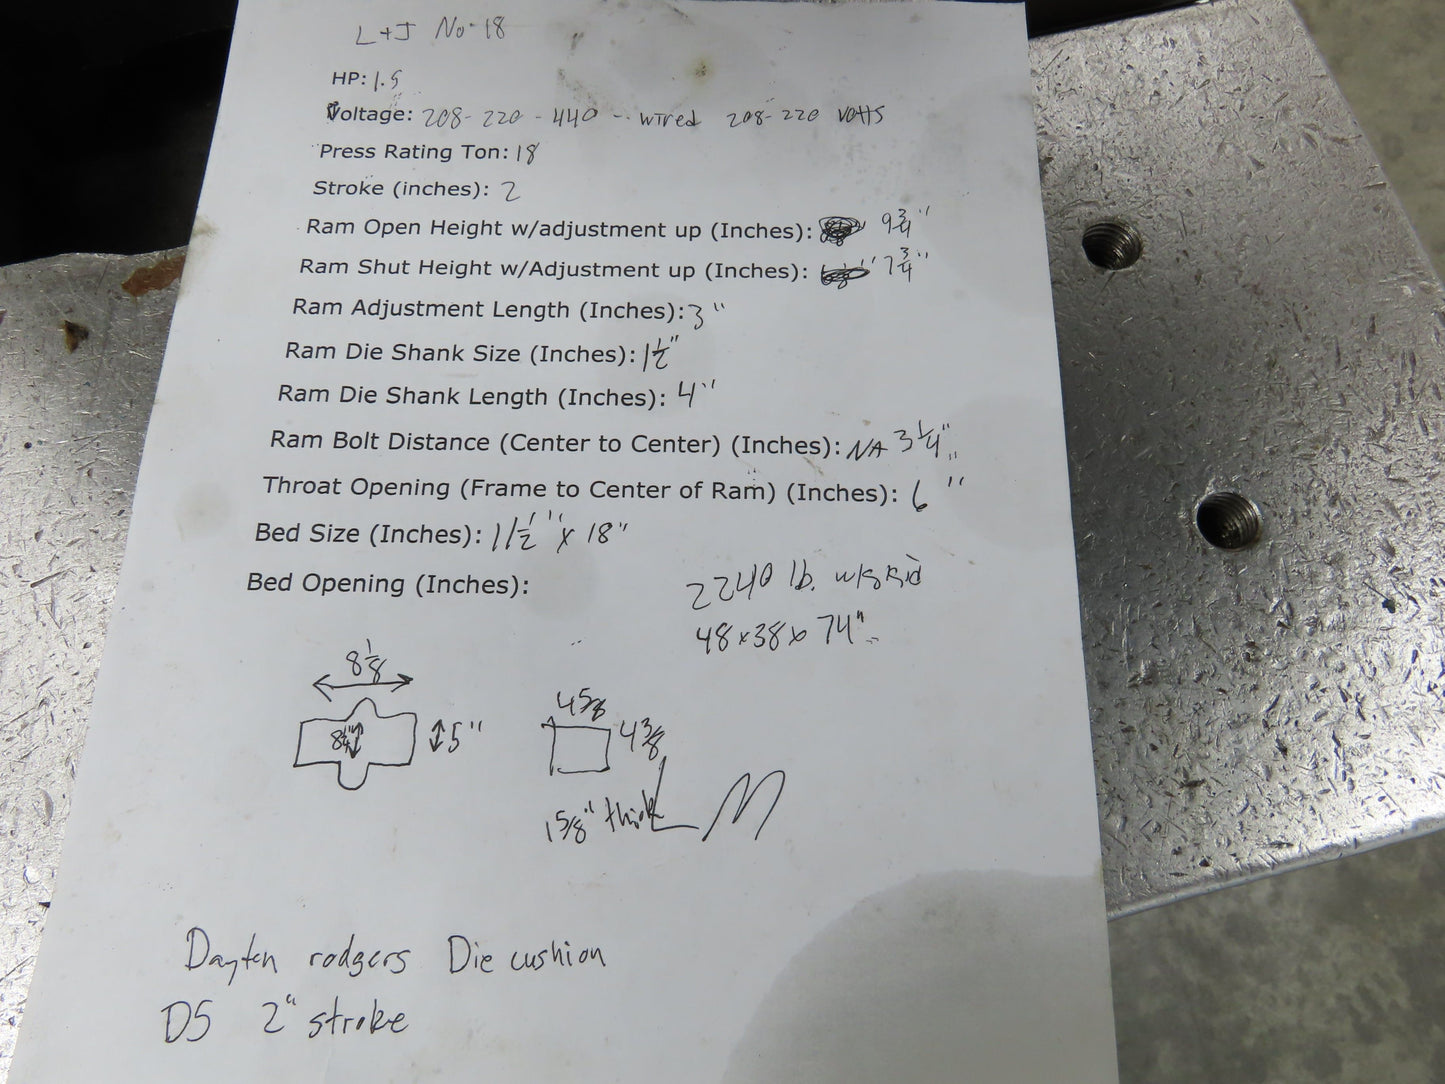 L+J No. 18
HP: 1.5
Voltage: 208-220-440 -- wired 208-220 volts
Press Rating Ton: 18
Stroke (inches): 2
Ram Open Height w/adjustment up (Inches): 9 3/4"
Ram Shut Height w/Adjustment up (Inches): 7 3/4"
Ram Adjustment Length (Inches): 3"
Ram Die Shank Size (Inches): 1 1/2"
Ram Die Shank Length (Inches): 4"
Ram Bolt Distance (Center to Center) (Inches): NA 3 1/4"
Throat Opening (Frame to Center of Ram) (Inches): 6"
Bed Size (Inches): 11 1/2" x 18"
Bed Opening (Inches):
2240 lb. w/skid
48x38x74"
8 1/8
5"
4 5/8
4 3/8
1 5/8" thick
LM
Dayton rodgers Die cushion
D5 2" stroke